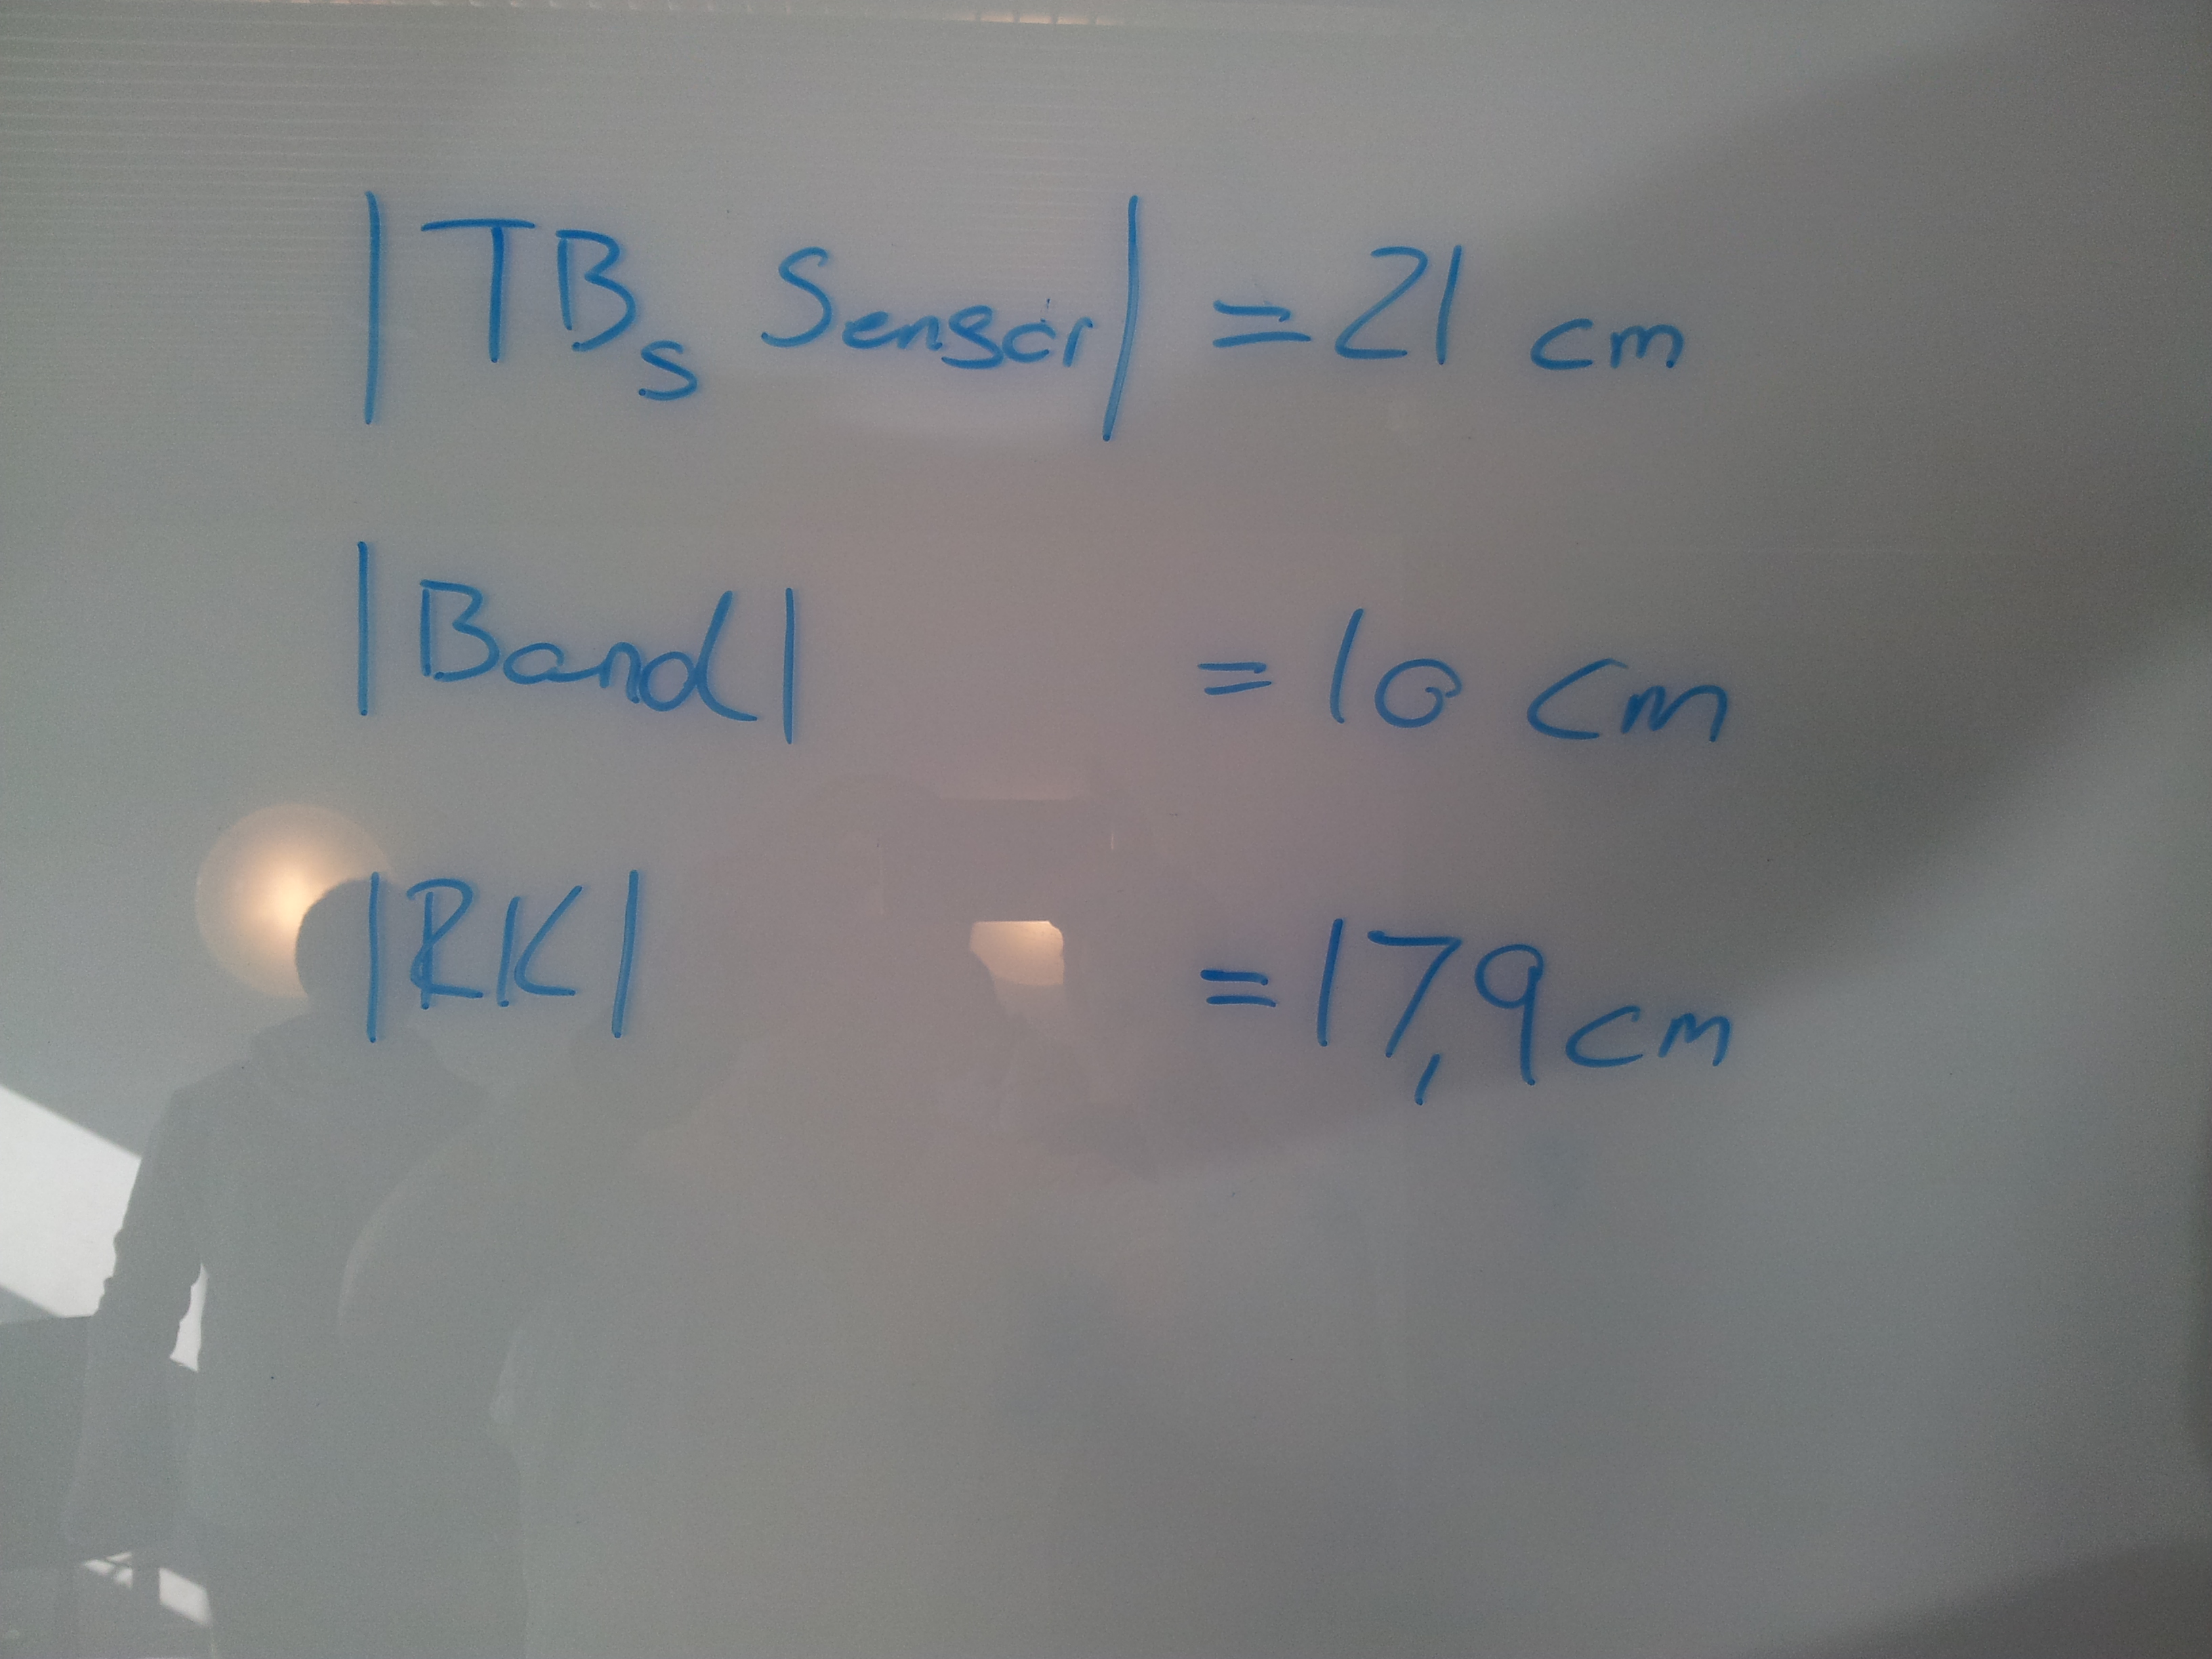 |TBs Sensor| = 21 cm
|Band| = 10 cm
|RK| = 17,9 cm